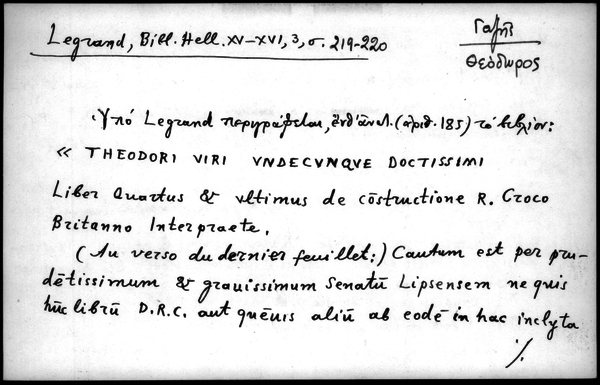 Legrand, Bibl. Hell. XV–XVI, 3, σ. 219-220
Γαζῆς
Θεόδωρος
Ὑπό Legrand περιγράφεται, ἔνθ' ἀνωτ. (ἀριθ. 185) τό βιβλίον:
« THEODORI VIRI VNDECVNQVE DOCTISSIMI
Liber Quartus & vltimus de cōstructione R. Croco
Britanno Interpraete.
(Au verso du dernier feuillet:) Cautum est per pru-
dētissimum & grauissimum Senatū Lipsensem ne quis
hūc librū D.R.C. aut quēuis aliū ab eodē in hac inclyta
./.